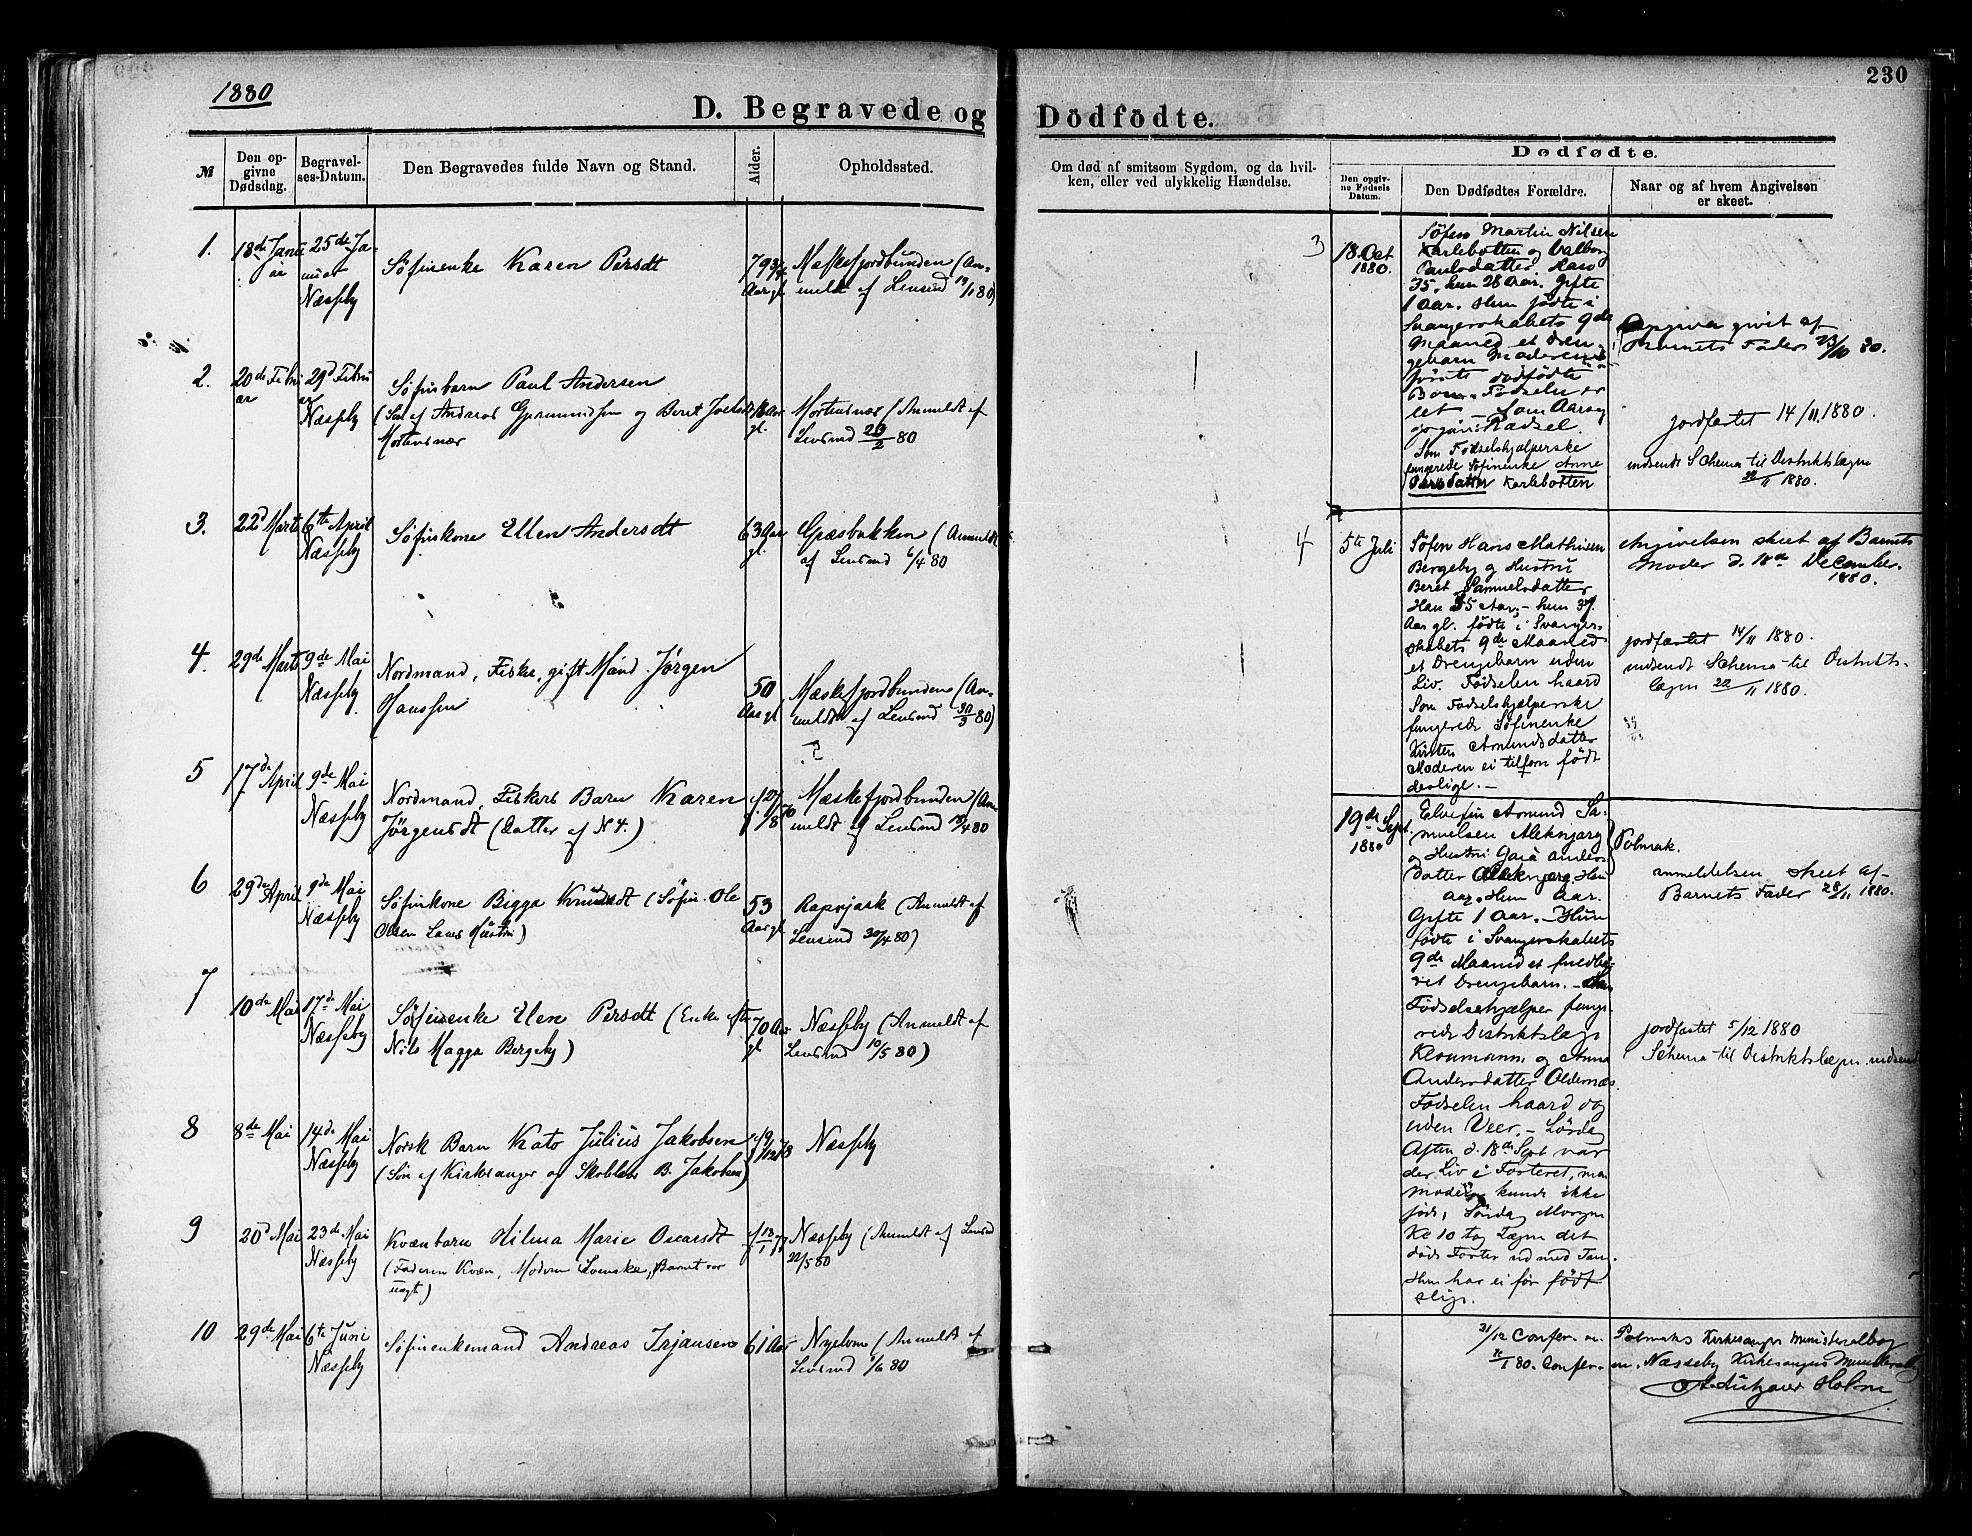 1880
230
D. Begravede og Dödfödte.
№
Den op-
givne
Dødsdag.
Begravel-
ses-Datum.
Den Begravedes fulde Navn og Stand.
Alder.
Opholdssted.
Om død af smitsom Sygdom, og da hvil-
ken, eller ved ulykkelig Hændelse.
Dødfødte.
Den opgiv-
ne Fødsels
Datum.
Den Dødfødtes Forældre.
Naar og af hvem Angivelsen
er skeet.
1.
18de Janu
ar
25de Ja-
nuar
Næsseby
Søfinenke Karen Persdt
79 3/4
Aar gl.
Mæskefjordbunden (An-
meldt af Lensmd 19/1 80)
2.
20de Febru
ar
29d Febru
ar
Næsseby
Søfinbarn Paul Andersen
(Søn af Andreas og Beret
Mortensnæs
Aar
gl.
Mortensnæs (Anmeldt af
Lensmd 23/2 80
3.
22d Marts
6te April
Næsseby
Søfinkone Ellen Andersdt
63 Aar
gl.
Græsbakken (Anmeldt
af Lensmd 6/4 80
4.
29de Marts
9de Mai
Næsseby
Nordmand, Fisker, gift Mand Jørgen
Hanssen
50
Aar gl
Mæskefjordbunden (An-
meldt af Lensmd 30/3 80)
5
17de April
9de Mai
Næsseby
Nordmand, Fiskers Barn Karen
Jørgensdt (Datter af N 4.)
Mæskefjordbunden (An
meldt af Lensmd 18/4 80
6
29de April
9de Mai
Næsseby
Søfinkone Bigga Knudsdt (Søfin Ole
Olsen Hustru)
53
Aar gl
(Anmeldt af
Lensmd 30/4 80)
7
10de Mai
17de Mai
Næsseby
Søfinenke Elen Persdt (Enke efter
Nils Magga Bergeby)
70 Aar
gl
Næsseby (Anmeldt af
Lensmd 10/5 80)
8
8de Mai
14de Mai
Næsseby
Norsk Barn Kato Julius Jakobsen
(Søn af Kirkesanger og B. Jakobsen)
Næsseby
9
20d Mai
23de Mai
Næsseby
Kvænbarn Hilma Marie
(Faderen Kvæn, Moderen Svenske, Barnet var
uægt)
Næsseby (Anmeldt af Lensmd
22/5 80
10
29de Mai
6te Juni
Næsseby
Søfinenkemand Andreas Irjansen
61 Aar
Nyelven (Anmeldt af
Lensmd 1/6 80
3
18. Oct
1880.
Søfin Martin Nilsen
Karlebotten og Valborg
Paulsdatter. Han
35, hun 28 Aar. Gifte
1 Aar. Hun fødte i
Svangerskabets 9de
Maaned et Dren-
gebarn Moderens
første dødfødte
Barn. Fødselen
let - Som Aarsag
opgives: Rædsel.
Som Fødselshjælperske
fungerede Søfinenke Anne
Karlebotten
Opgiven givet af
Barnets Fader 23/10 80.
jordfæstet 14/11 1880.
indsendt Schema til Distriktslægen
22/11 1880.
4
5te Juli
Søfin Hans Mathisen
Bergeby og Hustru
Beret Samuelsdatter
Han 35 Aar, - hun 37
Aar gl. fødte i Svanger-
skabets 9de Maaned
et Drengebarn uden
Liv. Fødselen haard
Som Fødselshjælperske
fungerede Søfinenke
Kirsten Amundsdatter
Moderen ei tilforn født
deslige. -
Angivelsen skeet af Barnets
Moder d. 18de December.
1880.
jordfæstet 14/11 1880.
indsendt Schema til Distrikts-
lægen 22/11 1880.
19de Sept.
1880
Elvefin Amund Sa-
muelsen Aleknjarg
og Hustru Anders
datter Aleknjarg. Han
Aar. Hun Aar.
Gifte 1 Aar. - Hun
fødte i Svangerskabets
9de Maaned et fuldbaa-
ret Drengebarn. -
Fødselshjælper funge-
rede Distriktslæge
Klaumann og Anna
Andersdatter Oldernæs.
Fødselen haard og
uden Veer. - Lørdag
Aften d. 18de Sept var
der Liv i Fosteret, men
Moderen kunde ikke
føde, Søndag Morgen
Kl 10 tog Lægen det
døde Foster ud med Tan.
Hun har ei før født
slig.
Polmak.
Anmeldelsen skeet af
Barnets Fader 28/11 1880.
jordfæstet 5/12 1880
Schema til Distriktslægen indsendt
31/12 Confer. m. Polmaks Kirkesangers Ministerialbog
80. Confer. m. Næsseby Kirkesangers Ministerialbog
Holm